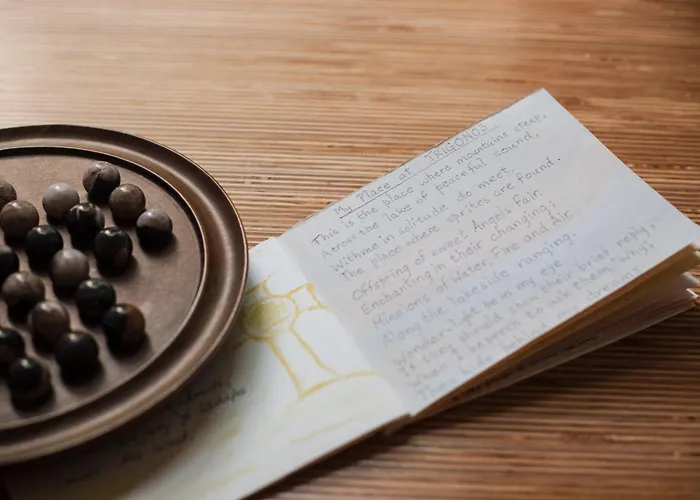 My Place at TRIGONOS
This is the place where mountains steep,
Across the lake of peaceful sound,
Within in solitude do meet,
The place where sprites are found.
Offspring of sweet Angels fair,
Enchanting in their changing;
Minions of Water, Fire and Air
Along the lakeside ranging.
Wonder-light bears my eye
If they should show their brief reply,
When I beseech to ask them, why?
They hide behind my dreams